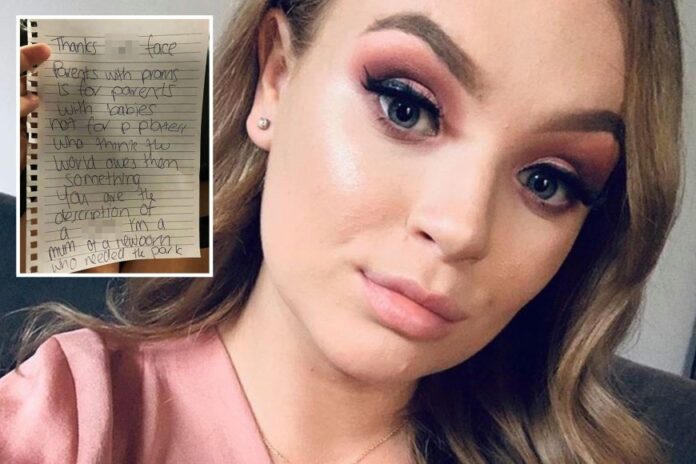 Thanks face
Parents with prams
is for parents
with babies
not for p platers
who think the
world owes them
something
You are the
description of
a I'm a
mum of a newborn
who needed the park